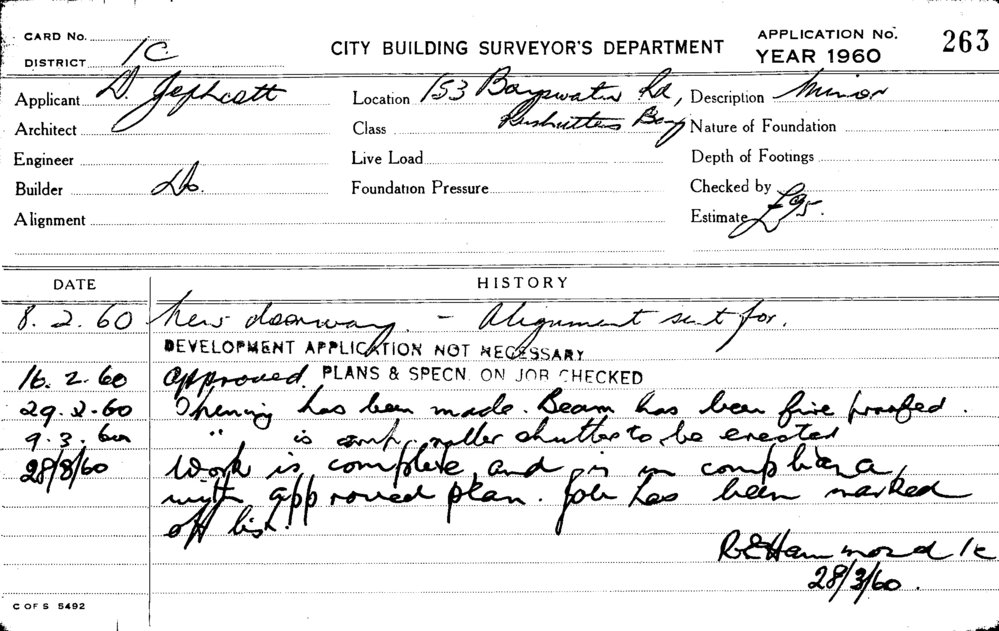 CARD No.
DISTRICT 1C
CITY BUILDING SURVEYOR'S DEPARTMENT
APPLICATION No. 263
YEAR 1960
Applicant D. Jephcott
Location 153 Bayswater Rd,
Rushcutters Bay
Description Minor
Architect
Class
Nature of Foundation
Engineer
Live Load
Depth of Footings
Builder Do.
Foundation Pressure
Checked by
Alignment
Estimate £95.
DATE HISTORY
8.2.60 New doorway. - Alignment sent for.
DEVELOPMENT APPLICATION NOT NECESSARY
16.2.60 Approved. PLANS & SPECN. ON JOB CHECKED
29.2.60 Opening has been made. Beam has been fire proofed.
9.3.60 " is comp. roller shutter to be erected
28/3/60 Work is complete and is in compliance
with approved plan. Job has been marked
off list.
R E Hammond 1c
28/3/60.
C OF S 5492